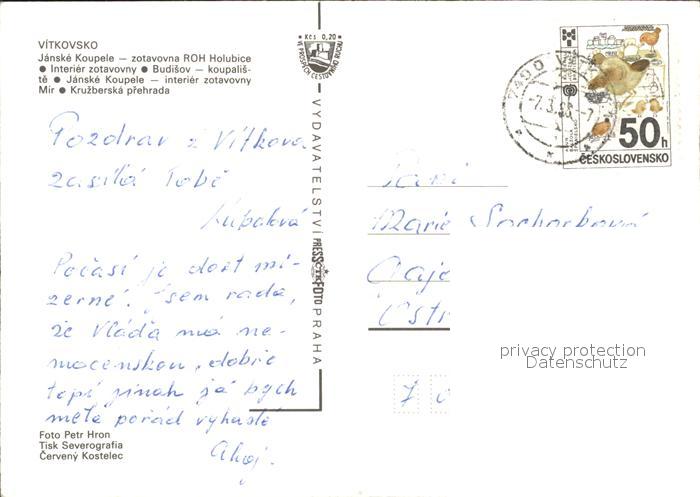 VÍTKOVSKO
Jánské Koupele – zotavovna ROH Holubice
● Interiér zotavovny ● Budišov – koupališ-
tě ● Jánské Koupele – interiér zotavovny
Mír ● Kružberská přehrada
Pozdrav z Vítkova
zasílá Tobě
Kupalová
Počasí je dost mi-
zerné. Jsem ráda,
že Vláďa má ne-
mocenskou, dobře
topí jinak já bych
měla pořád vyhaslé
Ahoj.
Foto Petr Hron
Tisk Severografia
Červený Kostelec
Kčs 0,20
VE PROSPĚCH CESTOVNÍHO RUCHU
VYDAVATELSTVÍ PRESSFOTO PRAHA
ČTK
50h
ČESKOSLOVENSKO
Paní
Marie
Gaja
Ostr
7 0
privacy protection
Datenschutz